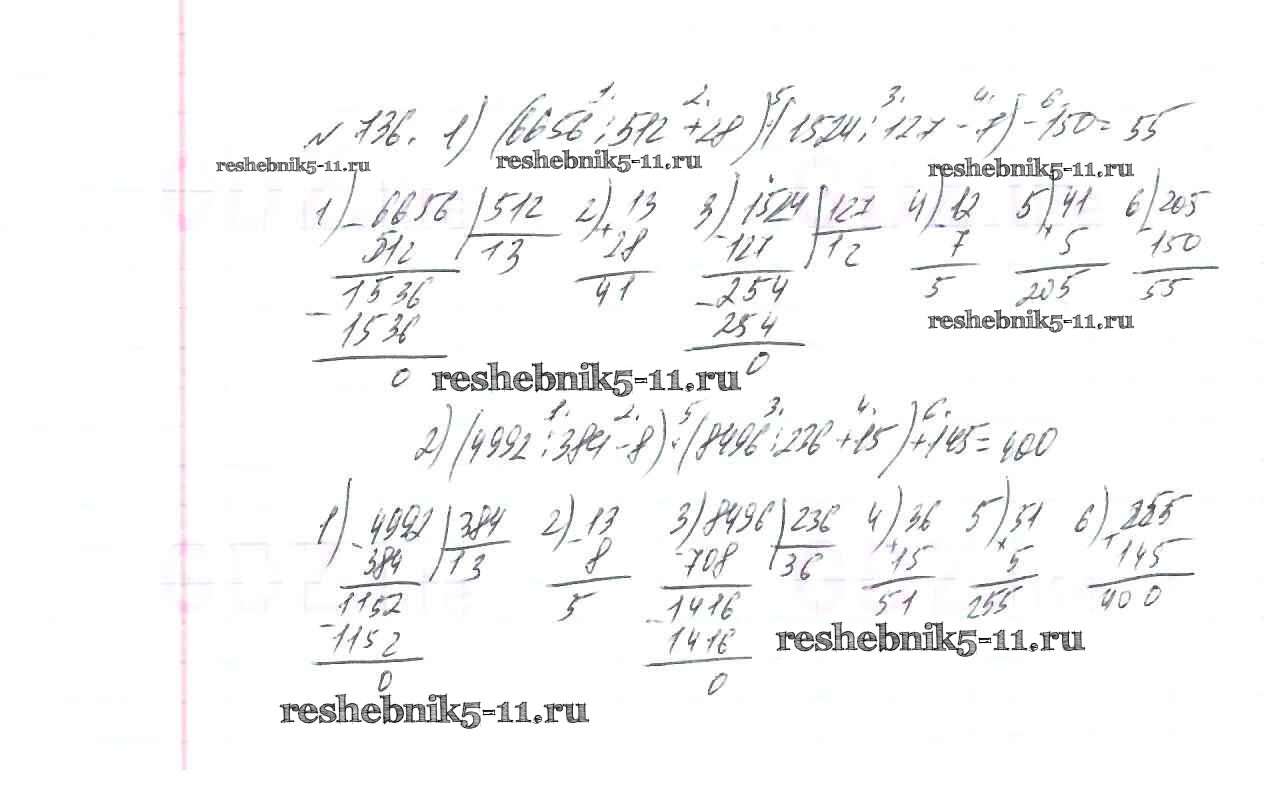 1. 2. 5 3. 4. 6.
№ 736. 1) (6656 : 512 + 28) · (1524 : 127 - 7) - 150 = 55
reshebnik5-11.ru reshebnik5-11.ru reshebnik5-11.ru
1) - 6656 | 512 2) + 13 3) - 1524 | 127 4) - 12 5) × 41 6) - 205
512 13 28 127 12 7 5 150
- 1536 41 - 254 5 205 55
1536 254 reshebnik5-11.ru
0 reshebnik5-11.ru 0
1. 2. 5 3. 4. 6.
2) (4992 : 384 - 8) · (8496 : 236 + 15) + 145 = 400
1) - 4992 | 384 2) - 13 3) - 8496 | 236 4) + 36 5) × 51 6) + 255
384 13 8 708 36 15 5 145
- 1152 5 - 1416 51 255 400
1152 1416 reshebnik5-11.ru
0 0
reshebnik5-11.ru